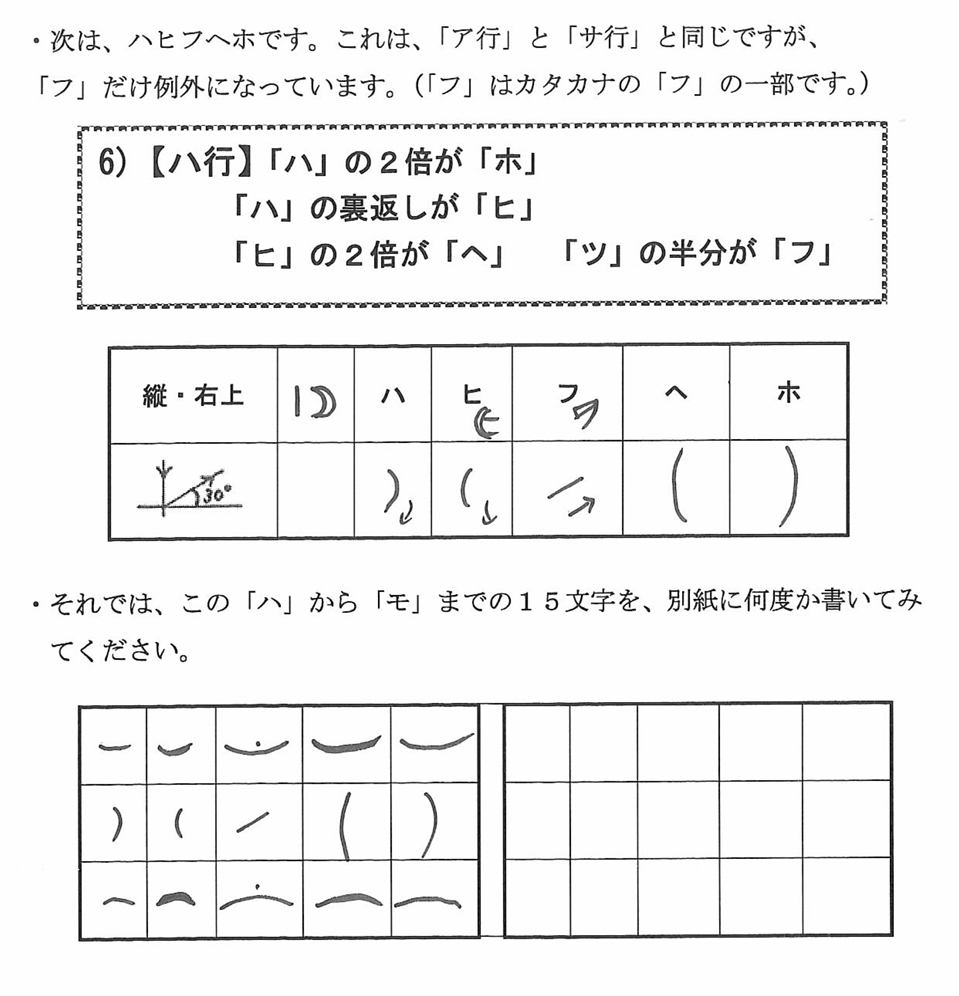 ・次は、ハヒフヘホです。これは、「ア行」と「サ行」と同じですが、
「フ」だけ例外になっています。（「フ」はカタカナの「フ」の一部です。）
6）【ハ行】「ハ」の２倍が「ホ」
「ハ」の裏返しが「ヒ」
「ヒ」の２倍が「ヘ」　「ツ」の半分が「フ」
縦・右上 ハ ヒ フ ヘ ホ
30°
・それでは、この「ハ」から「モ」までの１５文字を、別紙に何度か書いてみ
てください。